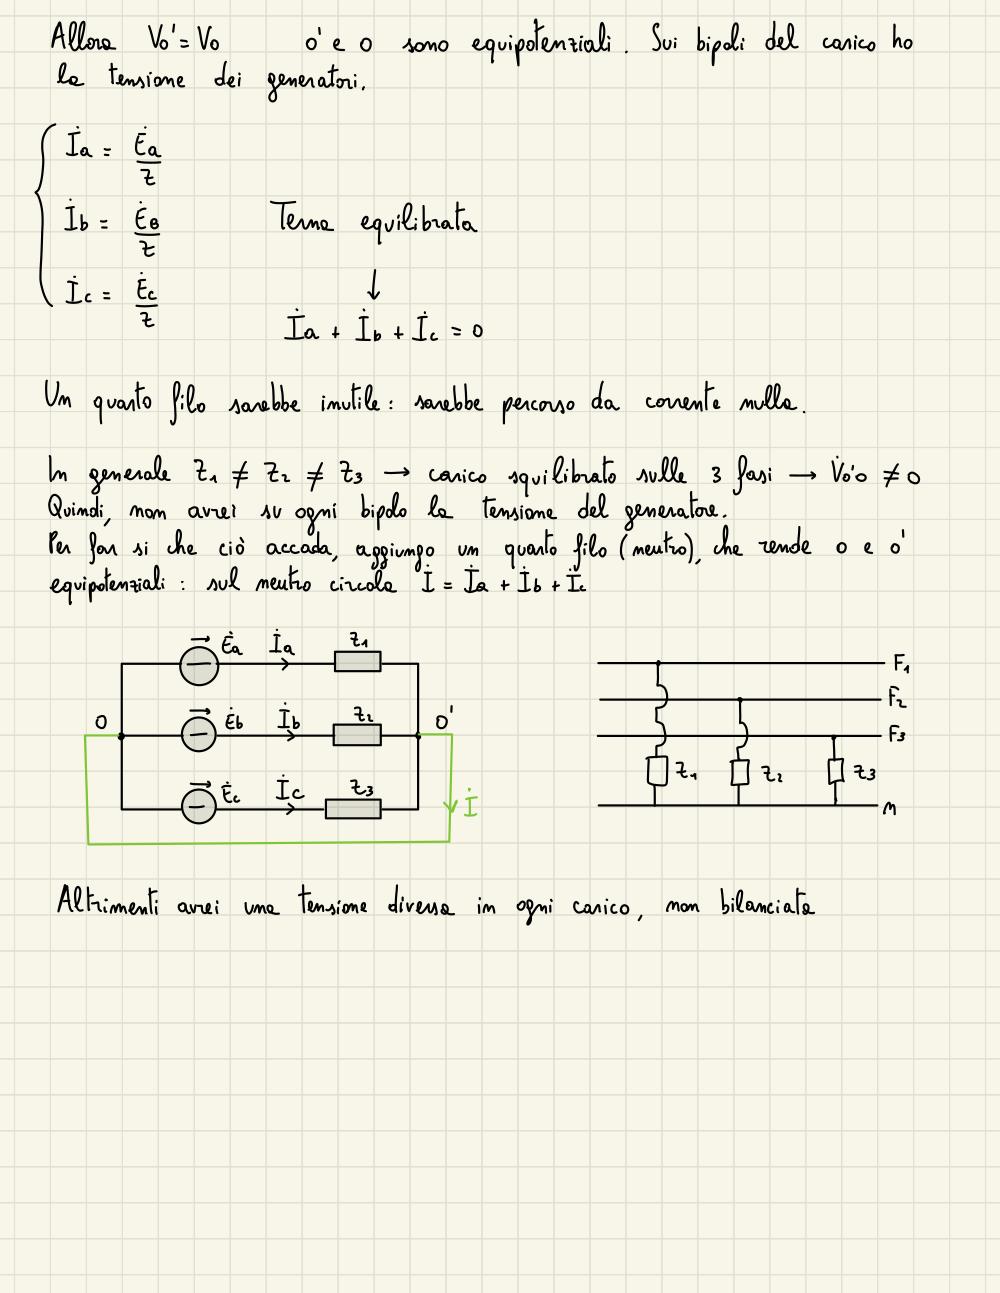 Allora Vo' = Vo o' e o sono equipotenziali. Sui bipoli del carico ho
la tensione dei generatori.
İa = Ėa/Z
İb = ĖB/Z
Terna equilibrata
↓
İc = Ėc/Z
İa + İb + İc = 0
Un quarto filo sarebbe inutile: sarebbe percorso da corrente nulla.
In generale Z1 ≠ Z2 ≠ Z3 → carico squilibrato sulle 3 fasi → V̇o'o ≠ 0
Quindi, non avrei su ogni bipolo la tensione del generatore.
Per far si che ciò accada, aggiungo un quarto filo (neutro), che rende o e o'
equipotenziali: sul neutro circola İ = İa + İb + İc
Ėa İa Z1
O Ėb İb Z2 O'
Ėc İc Z3
İ
F1
F2
F3
Z1 Z2 Z3
n
Altrimenti avrei una tensione diversa in ogni carico, non bilanciata